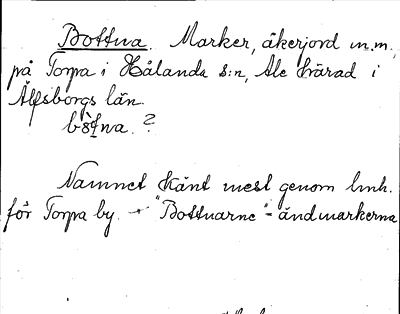 Bottna. Marker, åkerjord m.m.,
på Torpa i Hålanda s:n, Ale härad i
Älfsborgs län.
?
Namnet känt mest genom lmh.
för Torpa by. - "Bottnarne" - ändmarkerna